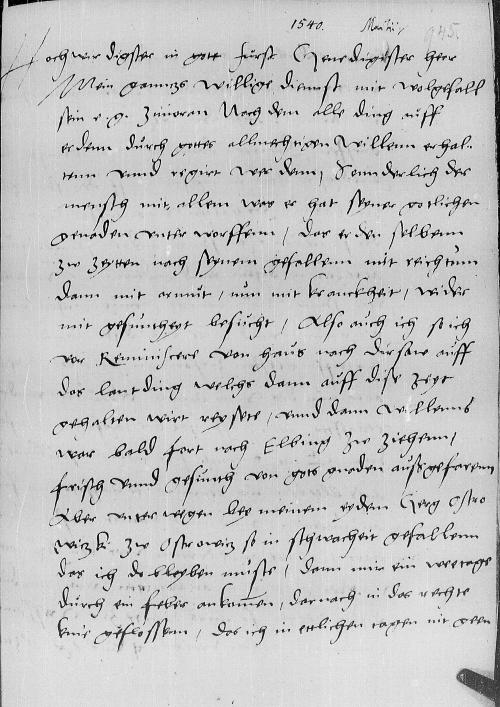 1540. Martij 945.
Hochwirdigster in gott furst Genedigister herr
Mein gannczs willige diennst mit wolgefall
sein e. g. zuuoran Nach dem alle ding auff
erdenn durch gottes allmechtigen willenn erhal-
tenn vnnd regirt werdenn, Sonnderlich der
mensch mit, allem was er hat seyner gotlichen
genaden vnterworffenn, das er den selbenn
zu zeytten nach seynem gefallenn mit reichtum
dann mit armut, nun mit kranckheit, wider
mit gesuntheyt besucht, Also auch ich so ich
vor Reminiscere von haus nach Dirsaw auff
das lantding welchs dann auff dise zeyt
gehalten wirt reysete, vnnd dann willenns
war bald fort nach Elbing zu ziehenn,
frisch vnnd gesunth von gots gnaden aussgefarenn
Aber vnterwegen bey meinem eydem Georg Ostro
witzk: zu Ostrowitz so in schwacheit gefallenn
das ich do bleyben muste, dann mir ein weetage
durch ein feber ankomen, darnach in das rechte
knie geflossenn, das ich in ettlichen tagen nit geen